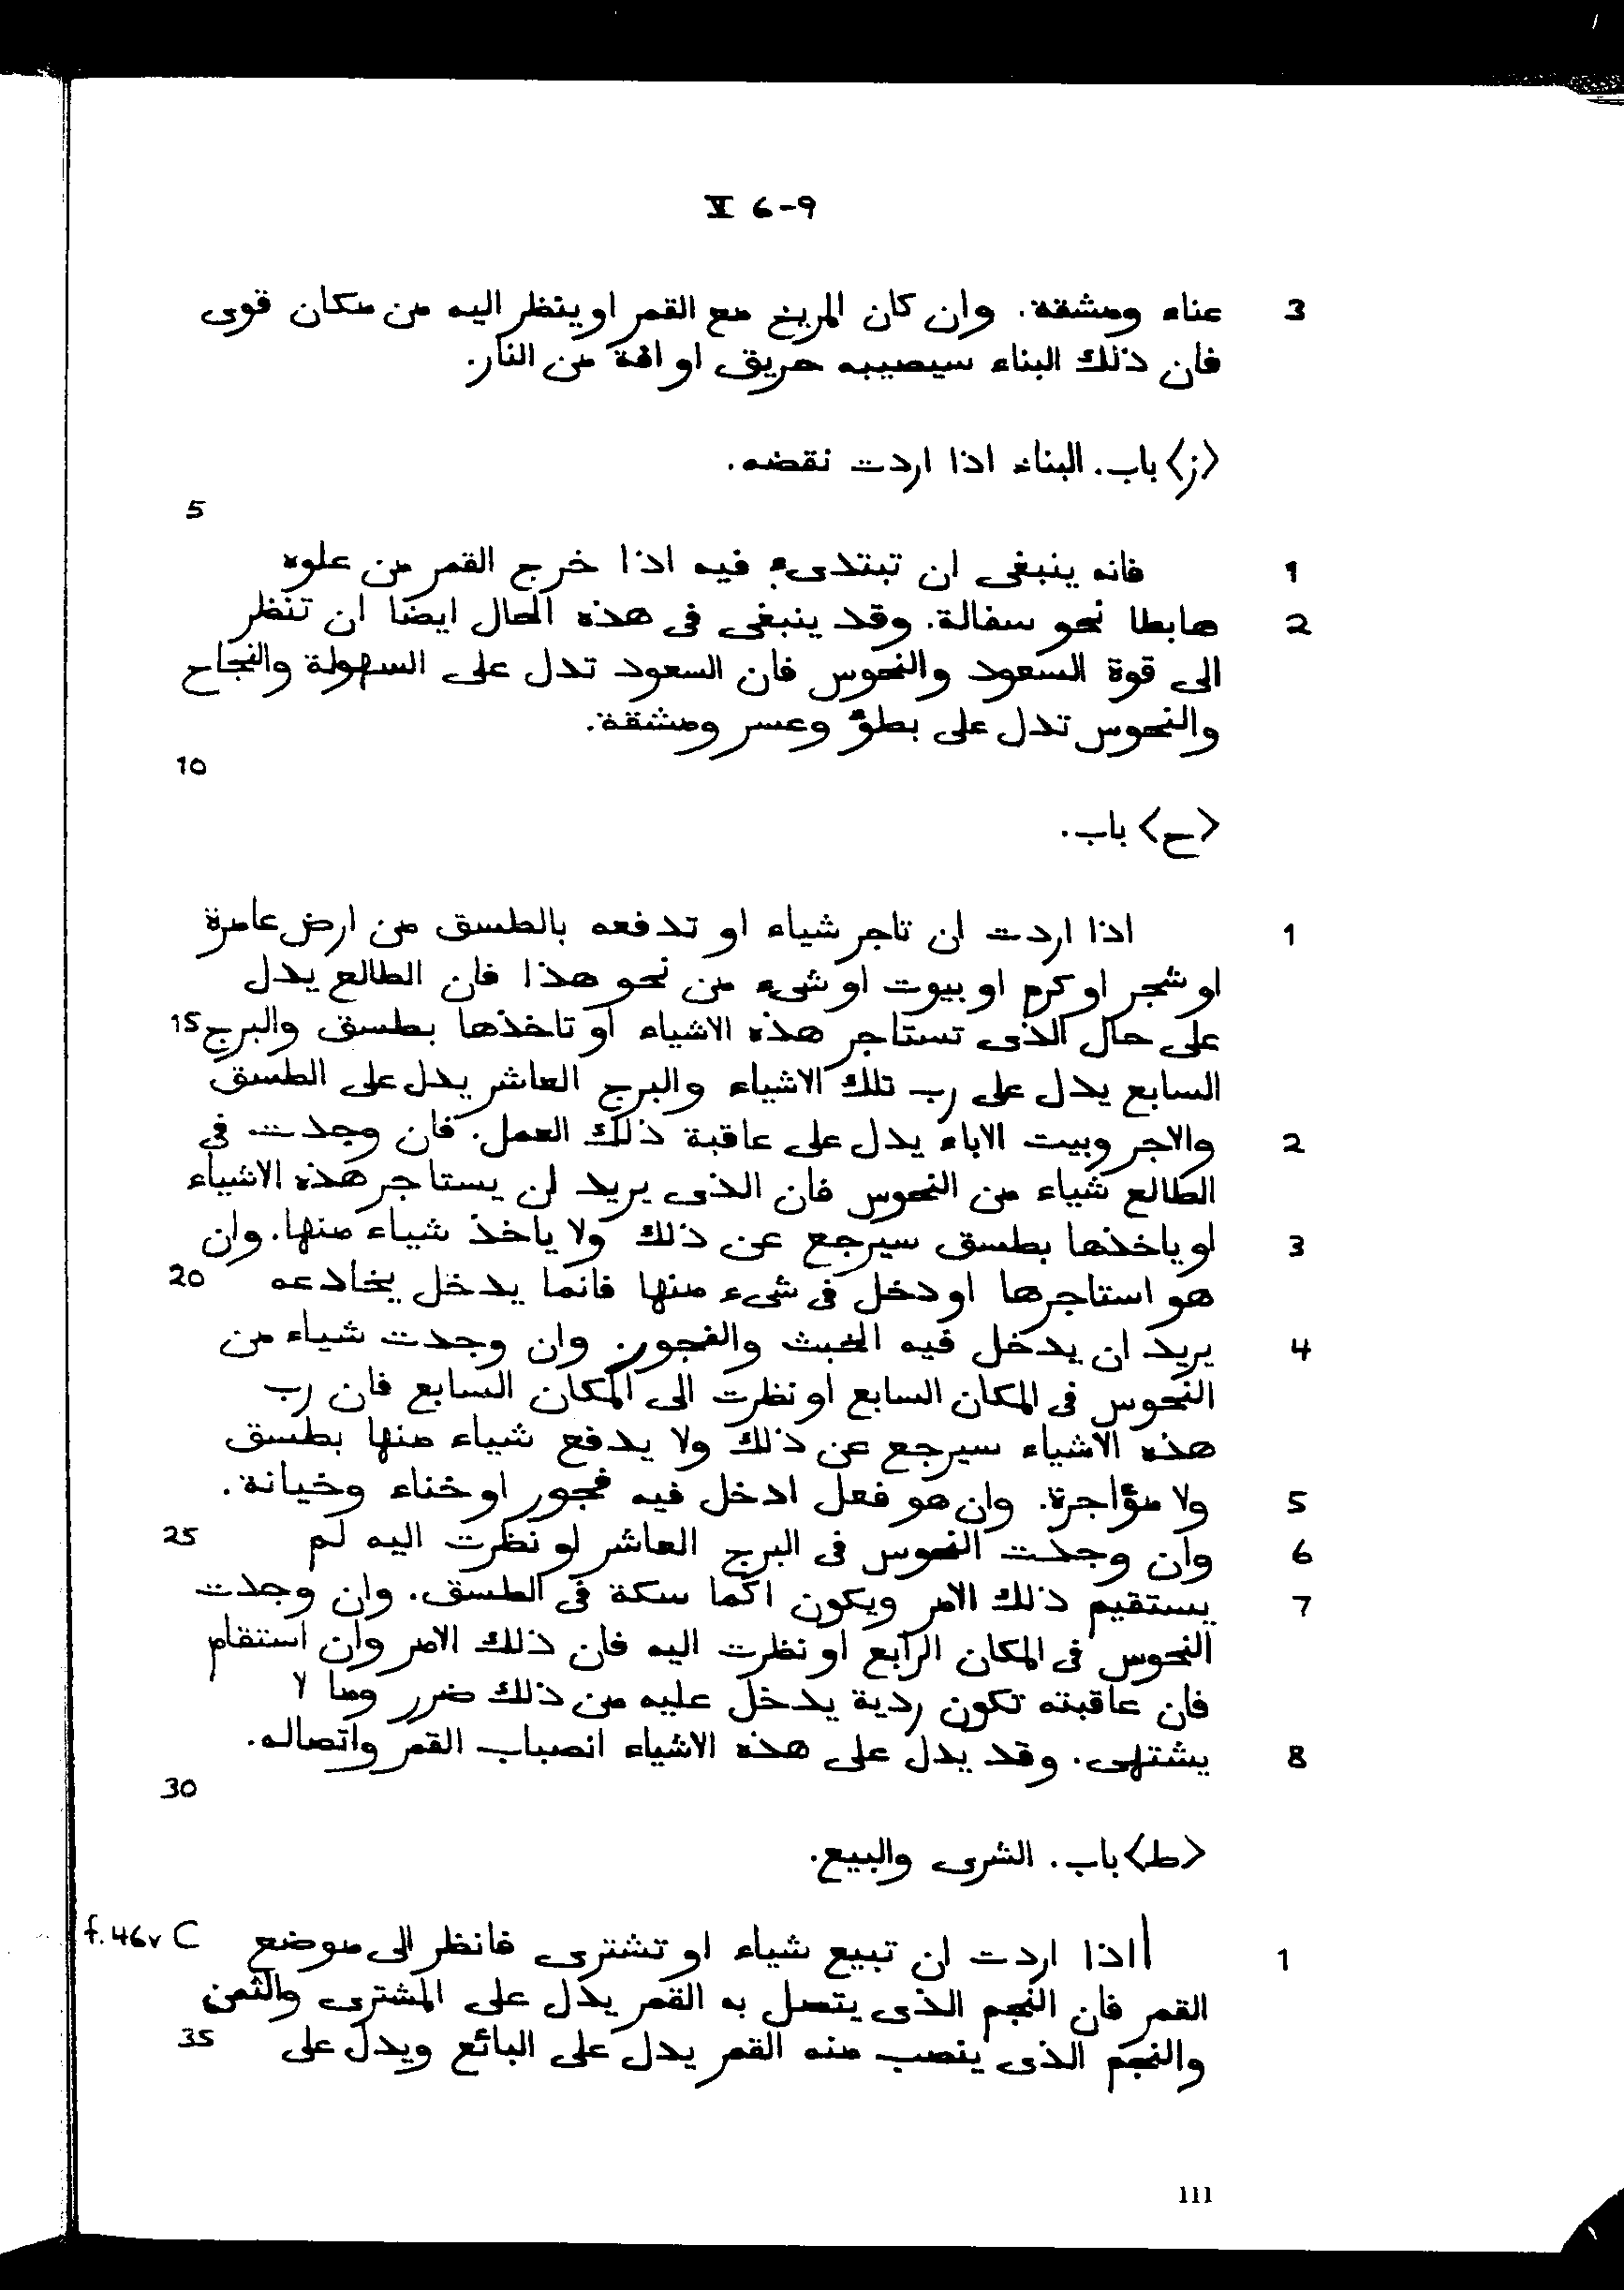 V 6-9
3 عناء ومشقة. وان كان المريخ مع القمر او ينظر اليه من مكان قوى
فان ذلك البناء سيصيبه حريق او افة من النار.
<ز> باب. البناء اذا اردت نقضه.
5
1 فانه ينبغى ان تبتدىء فيه اذا خرج القمر من علوه
2 هابطا نحو سفالة. وقد ينبغى فى هذه الحال ايضا ان تنظر
الى قوة السعود والنحوس فان السعود تدل على السهولة والنجاح
والنحوس تدل على بطؤ وعسر ومشقة.
10
<ح> باب.
1 اذا اردت ان تاجر شياء او تدفعه بالطسق من ارض عامرة
او شجر او كرم او بيوت او شىء من نحو هذا فان الطالع يدل
على حال الذى تستاجر هذه الاشياء او تاخذها بطسق والبرج 15
السابع يدل على رب تلك الاشياء والبرج العاشر يدل على الطسق
2 والاجر وبيت الاباء يدل على عاقبة ذلك العمل. فان وجدت فى
الطالع شياء من النحوس فان الذى يريد ان يستاجر هذه الاشياء
3 او ياخذها بطسق سيرجع عن ذلك ولا ياخذ شياء منها. وان
هو استاجرها او دخل فى شىء منها فانما يدخل يخادعه 20
4 يريد ان يدخل فيه الخبث والفجور. وان وجدت شياء من
النحوس فى المكان السابع او نظرت الى المكان السابع فان رب
هذه الاشياء سيرجع عن ذلك ولا يدفع شياء منها بطسق
5 ولا مؤاجرة. وان هو فعل ادخل فيه فجور او خناء وخيانة.
6 وان وجدت النحوس فى البرج العاشر او نظرت اليه لم 25
7 يستقيم ذلك الامر ويكون اكما سكة فى الطسق. وان وجدت
النحوس فى المكان الرابع او نظرت اليه فان ذلك الامر وان استقام
فان عاقبته تكون ردية يدخل عليه من ذلك ضرر وما لا
8 يشتهى. وقد يدل على هذه الاشياء انصباب القمر واتصاله.
30
<ط> باب. الشرى والبيع.
1 |اذا اردت ان تبيع شياء او تشترى فانظر الى موضع f. 46v C
القمر فان النجم الذى يتصل به القمر يدل على المشترى والثمن
والنجم الذى ينصب منه القمر يدل على البائع ويدل على 35
111